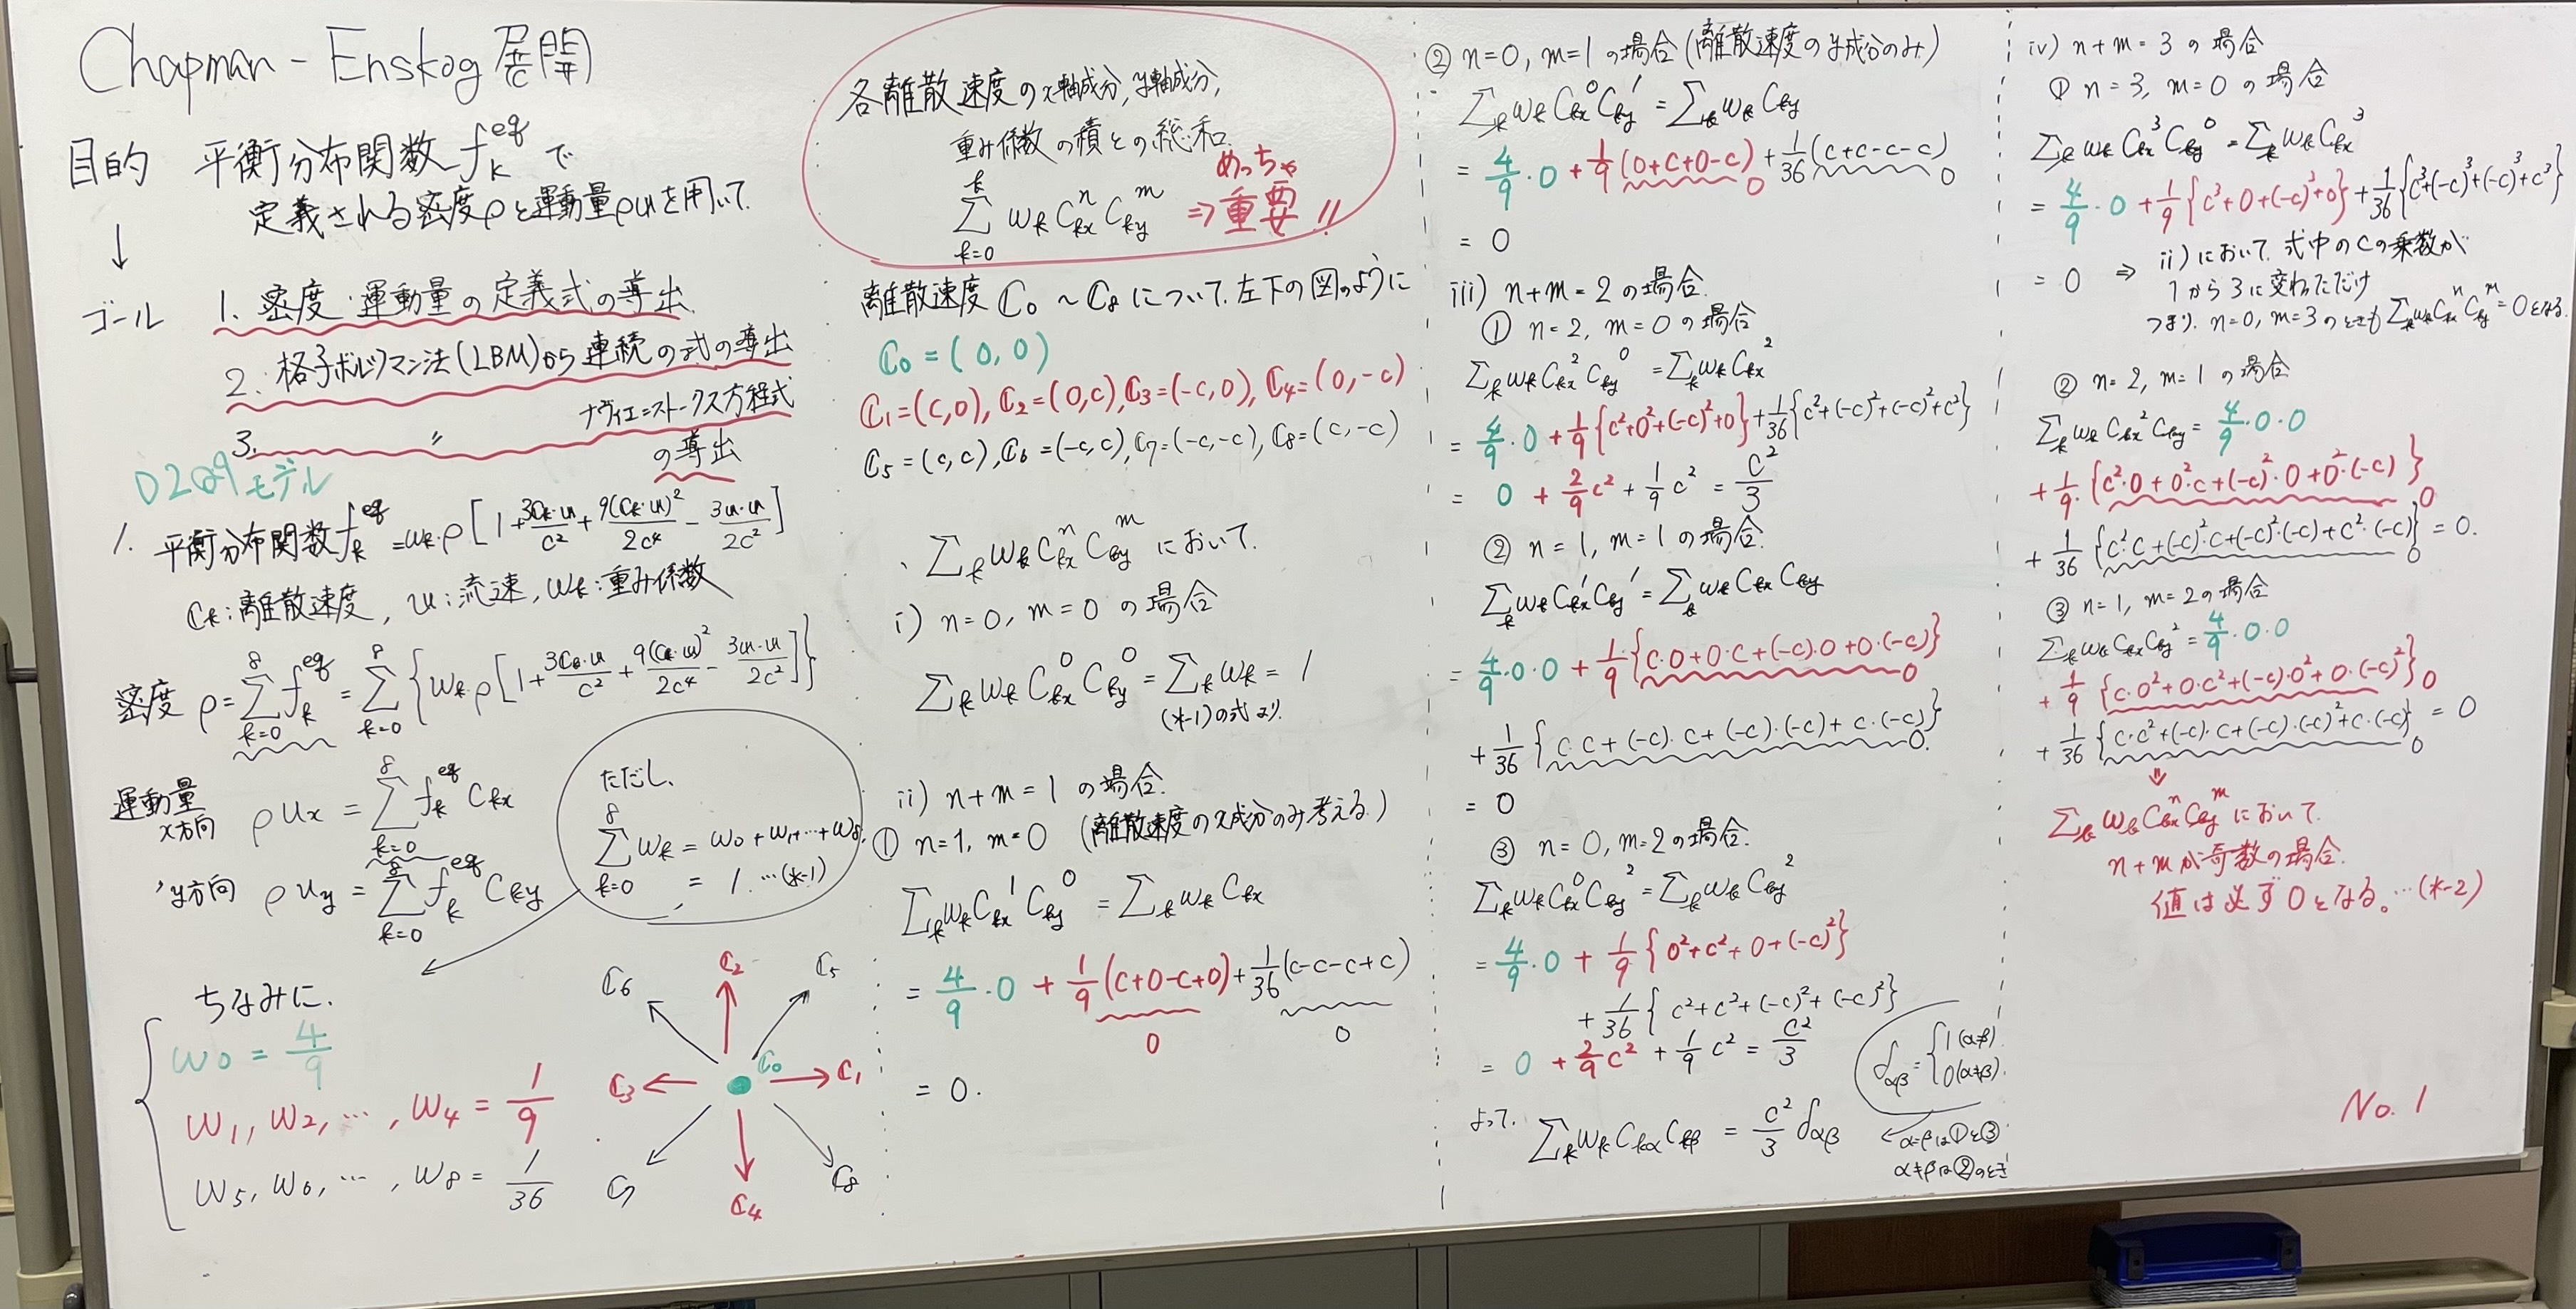 Chapman-Enskog 展開
目的 平衡分布関数 f_k^{eq} で
定義される密度ρと運動量ρuを用いて
↓
ゴール 1. 密度・運動量の定義式の導出
2. 格子ボルツマン法(LBM)から連続の式の導出
3. 〃 ナヴィエ=ストークス方程式
の導出
D2Q9モデル
1. 平衡分布関数 f_k^{eq} = w_k ρ [1 + 3C_k・u/c² + 9(C_k・u)²/2c⁴ − 3u・u/2c²]
C_k:離散速度, u:流速, w_k:重み係数
密度 ρ = Σ_{k=0}^{8} f_k^{eq} = Σ_{k=0}^{8} {w_k ρ [1 + 3C_k・u/c² + 9(C_k・u)²/2c⁴ − 3u・u/2c²]}
運動量
x方向 ρu_x = Σ_{k=0}^{8} f_k^{eq} C_{kx}
y方向 ρu_y = Σ_{k=0}^{8} f_k^{eq} C_{ky}
ただし、
Σ_{k=0}^{8} w_k = w_0 + w_1 + … + w_8
= 1. …(*-1)
ちなみに.
w_0 = 4/9
w_1, w_2, …, w_4 = 1/9
w_5, w_6, …, w_8 = 1/36
C_6 C_2 C_5
C_3 C_0 C_1
C_7 C_4 C_8
各離散速度のx軸成分, y軸成分,
重み係数の積との総和
Σ_{k=0}^{k} w_k C_{kx}^n C_{ky}^m ⇒ めっちゃ重要!!
離散速度 C_0 ~ C_8 について. 左下の図のように
C_0 = (0, 0)
C_1 = (c, 0), C_2 = (0, c), C_3 = (-c, 0), C_4 = (0, -c)
C_5 = (c, c), C_6 = (-c, c), C_7 = (-c, -c), C_8 = (c, -c)
Σ_k w_k C_{kx}^n C_{ky}^m において.
i) n=0, m=0 の場合
Σ_k w_k C_{kx}^0 C_{ky}^0 = Σ_k w_k = 1
(*-1)の式より.
ii) n+m=1 の場合.
① n=1, m=0 (離散速度のx成分のみ考える)
Σ_k w_k C_{kx}^1 C_{ky}^0 = Σ_k w_k C_{kx}
= 4/9・0 + 1/9(c+0-c+0) + 1/36(c-c-c+c)
0 0
= 0.
② n=0, m=1 の場合 (離散速度のy成分のみ)
Σ_k w_k C_{kx}^0 C_{ky}^1 = Σ_k w_k C_{ky}
= 4/9・0 + 1/9(0+c+0-c) + 1/36(c+c-c-c)
0 0
= 0
iii) n+m=2 の場合.
① n=2, m=0 の場合
Σ_k w_k C_{kx}^2 C_{ky}^0 = Σ_k w_k C_{kx}^2
= 4/9・0 + 1/9{c²+0²+(-c)²+0} + 1/36{c²+(-c)²+(-c)²+c²}
= 0 + 2/9 c² + 1/9 c² = c²/3
② n=1, m=1 の場合.
Σ_k w_k C_{kx}^1 C_{ky}^1 = Σ_k w_k C_{kx} C_{ky}
= 4/9・0・0 + 1/9{c・0+0・c+(-c)・0+0・(-c)}
0
+ 1/36{c・c+(-c)・c+(-c)・(-c)+c・(-c)}
0.
= 0
③ n=0, m=2 の場合.
Σ_k w_k C_{kx}^0 C_{ky}^2 = Σ_k w_k C_{ky}^2
= 4/9・0 + 1/9{0²+c²+0+(-c)²}
+ 1/36{c²+c²+(-c)²+(-c)²}
= 0 + 2/9 c² + 1/9 c² = c²/3
δ_{αβ} = {1(α=β) 0(α≠β).
よって. Σ_k w_k C_{kα} C_{kβ} = c²/3 δ_{αβ} ← α=βは①と③
α≠βは②のとき
iv) n+m=3 の場合
① n=3, m=0 の場合
Σ_k w_k C_{kx}^3 C_{ky}^0 = Σ_k w_k C_{kx}^3
= 4/9・0 + 1/9{c³+0+(-c)³+0} + 1/36{c³+(-c)³+(-c)³+c³}
= 0 ⇒ ii)において. 式中のcの乗数が
1から3に変わっただけ
つまり. n=0, m=3 のときも Σ_k w_k C_{kx}^n C_{ky}^m = 0となる.
② n=2, m=1 の場合
Σ_k w_k C_{kx}^2 C_{ky} = 4/9・0・0
+ 1/9{c²・0+0²・c+(-c)²・0+0²・(-c)}
0
+ 1/36{c²・c+(-c)²・c+(-c)²・(-c)+c²・(-c)} = 0.
0
③ n=1, m=2の場合
Σ_k w_k C_{kx} C_{ky}^2 = 4/9・0・0
+ 1/9{c・0²+0・c²+(-c)・0²+0・(-c)²}
0
+ 1/36{c・c²+(-c)・c+(-c)・(-c)²+c・(-c)} = 0
0
⇓
Σ_k w_k C_{kx}^n C_{ky}^m において.
n+mが奇数の場合.
値は必ず0となる。…(*-2)
No. 1